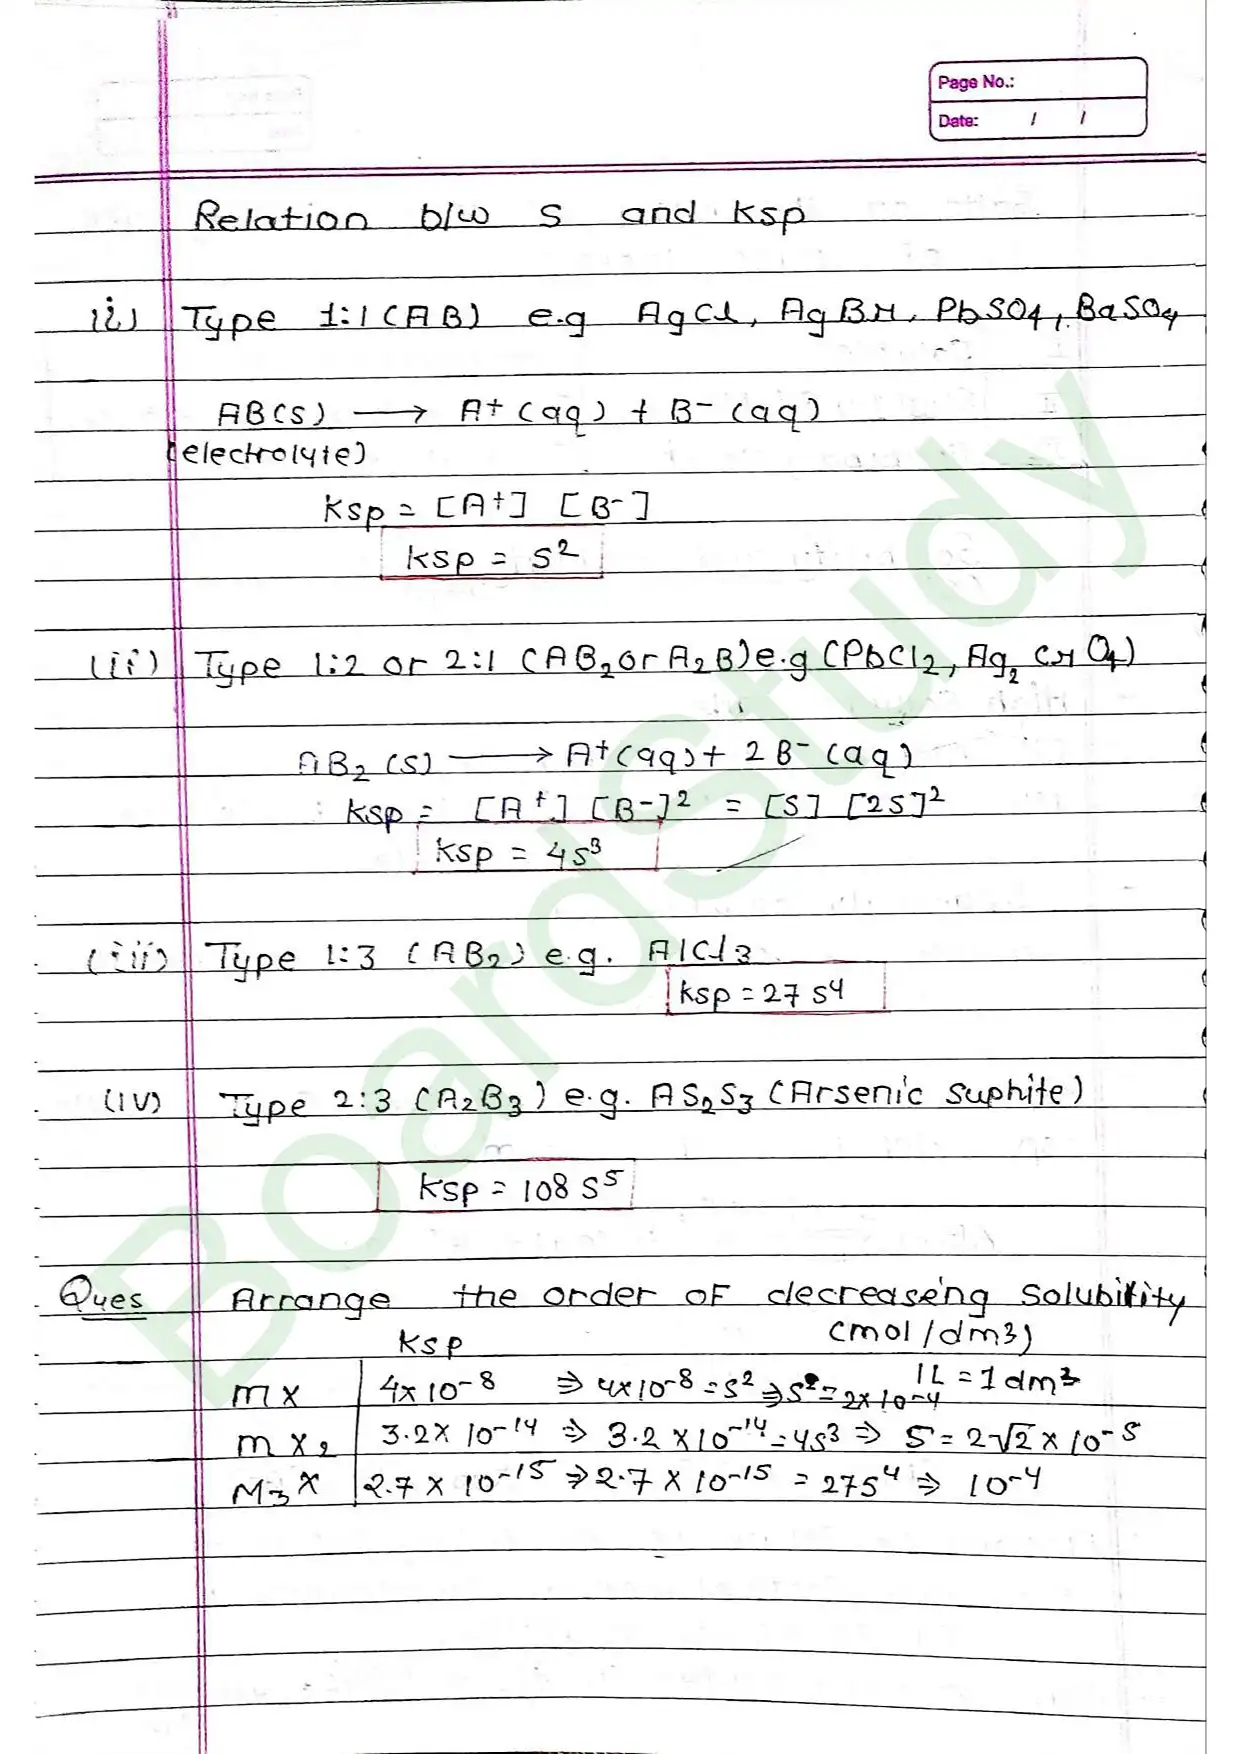 Page No.:
Date: / /
Relation b/w S and Ksp
(i) Type 1:1 (AB) e.g AgCl, AgBr, PbSO4, BaSO4
AB(s) ⟶ A+ (aq) + B- (aq)
(electrolyte)
Ksp = [A+] [B-]
Ksp = S²
(ii) Type 1:2 or 2:1 (AB2 or A2B) e.g (PbCl2, Ag2CrO4)
AB2 (s) ⟶ A+ (aq) + 2B- (aq)
Ksp = [A+] [B-]² = [S] [2S]²
Ksp = 4S³
(iii) Type 1:3 (AB2) e.g. AlCl3
Ksp = 27 S⁴
(iv) Type 2:3 (A2B3) e.g. AS2S3 (Arsenic Suphite)
Ksp = 108 S⁵
Ques Arrange the order of decreaseing Solubility
Ksp (mol/dm3)
1L = 1dm³
mx 4×10-8 ⇒ 4×10-8 = S² ⇒ S = 2×10-4
mx2 3.2×10-14 ⇒ 3.2×10-14 = 4S³ ⇒ S = 2√2×10-5
M3X 2.7×10-15 ⇒ 2.7×10-15 = 27S⁴ ⇒ 10-4
BoardStudy